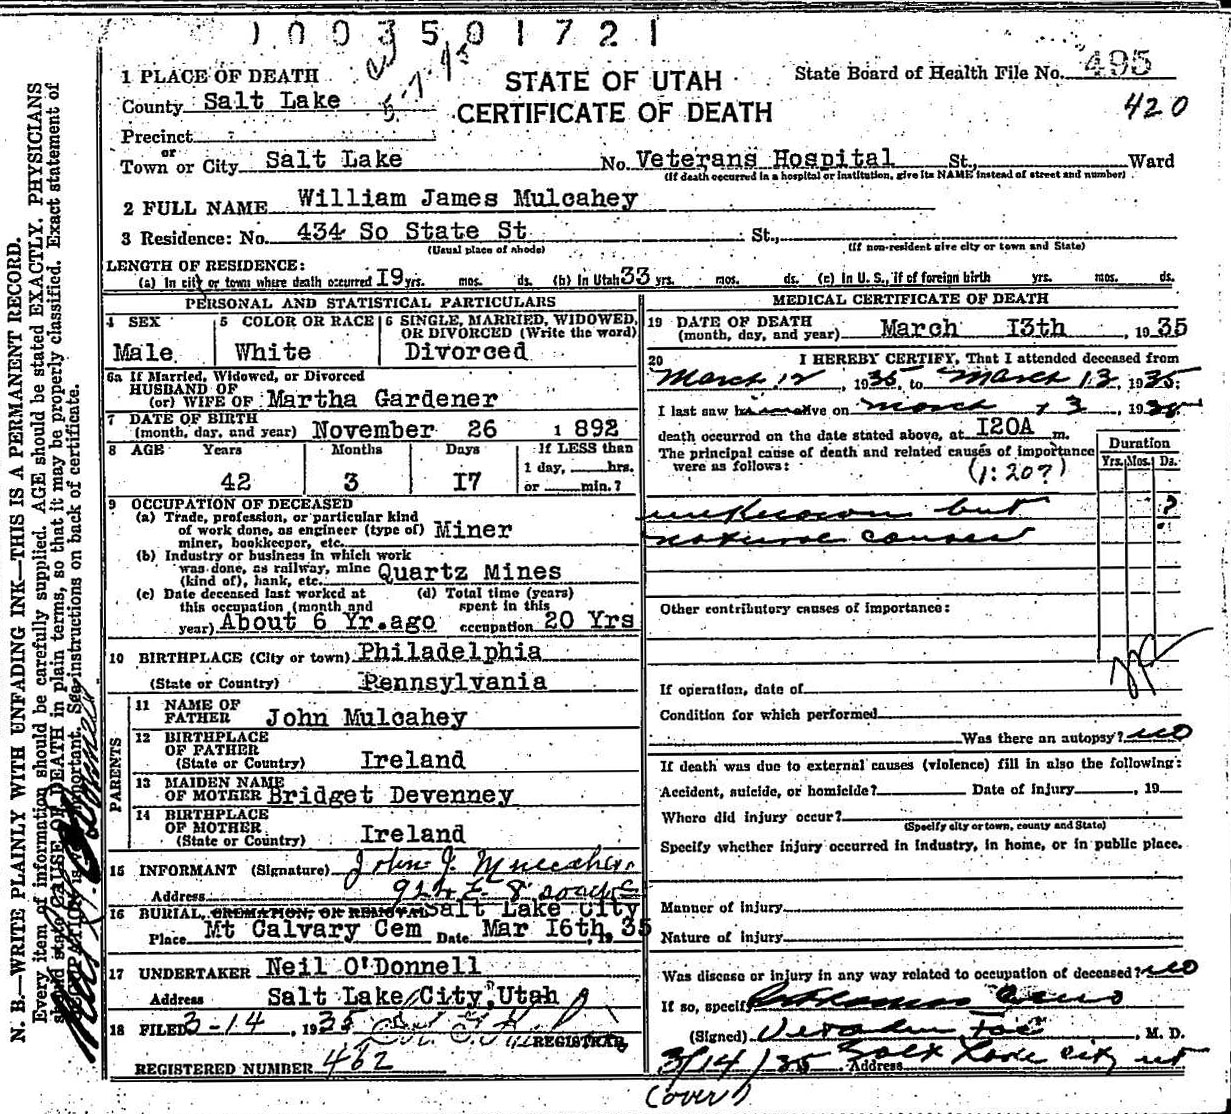 1003501721
5-7-45
1 PLACE OF DEATH
STATE OF UTAH
CERTIFICATE OF DEATH
State Board of Health File No. 495
420
County Salt Lake
Precinct
or
Town or City Salt Lake No. Veterans Hospital St., Ward
(If death occurred in a hospital or institution, give its NAME instead of street and number)
2 FULL NAME William James Mulcahey
3 Residence: No. 434 So State St St.,
(Usual place of abode) (If non-resident give city or town and State)
LENGTH OF RESIDENCE:
(a) In city or town where death occurred 19 yrs. mos. ds. (b) In Utah 33 yrs. mos. ds. (c) In U. S., if of foreign birth yrs. mos. ds.
PERSONAL AND STATISTICAL PARTICULARS
4 SEX Male
5 COLOR OR RACE White
6 SINGLE, MARRIED, WIDOWED, OR DIVORCED (Write the word) Divorced
6a If Married, Widowed, or Divorced
HUSBAND OF
(or) WIFE OF Martha Gardener
7 DATE OF BIRTH
(month, day, and year) November 26 1892
8 AGE Years Months Days If LESS than
1 day, hrs.
42 3 17 or min.?
9 OCCUPATION OF DECEASED
(a) Trade, profession, or particular kind
of work done, as engineer (type of) Miner
miner, bookkeeper, etc.
(b) Industry or business in which work
was done, as railway, mine Quartz Mines
(kind of), bank, etc.
(c) Date deceased last worked at
this occupation (month and
year) About 6 Yr. ago
(d) Total time (years)
spent in this
occupation 20 Yrs
10 BIRTHPLACE (City or town) Philadelphia
(State or Country) Pennsylvania
PARENTS
11 NAME OF
FATHER John Mulcahey
12 BIRTHPLACE
OF FATHER
(State or Country) Ireland
13 MAIDEN NAME
OF MOTHER Bridget Devenney
14 BIRTHPLACE
OF MOTHER
(State or Country) Ireland
15 INFORMANT (Signature) John J. Mulcahey
Address 924 E 8
16 BURIAL, CREMATION, OR REMOVAL Salt Lake City
Place Mt Calvary Cem Date Mar 16th, 19 35
17 UNDERTAKER Neil O'Donnell
Address Salt Lake City, Utah
18 FILED 3-14, 1935
REGISTRAR
REGISTERED NUMBER 462
MEDICAL CERTIFICATE OF DEATH
19 DATE OF DEATH
(month, day, and year) March 13th, 1935
20 I HEREBY CERTIFY, That I attended deceased from
March 12, 1935, to March 13, 1935;
I last saw him alive on March 13, 1935
death occurred on the date stated above, at 120A m.
The principal cause of death and related causes of importance
were as follows: (1:20?)
Duration
Yrs. Mos. Ds.
unknown but ?
natural causes
Other contributory causes of importance:
If operation, date of
Condition for which performed
Was there an autopsy? no
If death was due to external causes (violence) fill in also the following:
Accident, suicide, or homicide? Date of injury, 19
Where did injury occur?
(Specify city or town, county and State)
Specify whether injury occurred in industry, in home, or in public place.
Manner of injury
Nature of injury
Was disease or injury in any way related to occupation of deceased? no
If so, specify
(Signed) , M. D.
3/14/35 Address Salt Lake City Ut
(over)
N. B.—WRITE PLAINLY WITH UNFADING INK—THIS IS A PERMANENT RECORD.
Every item of information should be carefully supplied. AGE should be stated EXACTLY. PHYSICIANS
should state CAUSE OF DEATH in plain terms, so that it may be properly classified. Exact statement of
OCCUPATION is important. See instructions on back of certificate.